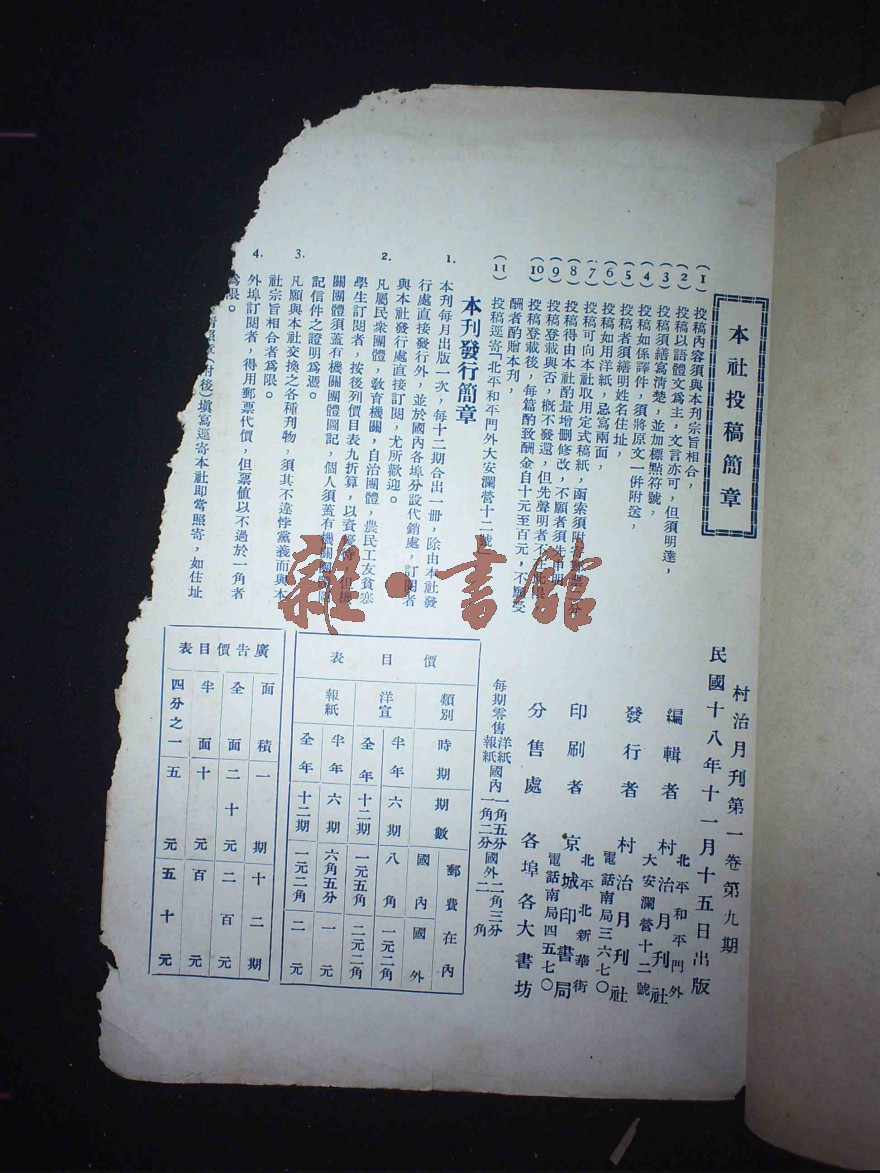 本社投稿簡章
(1)投稿內容須與本刊宗旨相合，
(2)投稿以語體文爲主，文言亦可，但須明達，
(3)投稿須繕寫清楚，並加標點符號，
(4)投稿如係譯件，須將原文一併附送，
(5)投稿者須繕明姓名住址，
(6)投稿如用洋紙，忌寫兩面，
(7)投稿可向本社取用定式稿紙，函索須附
(8)投稿得由本社酌量增刪修改，不願者須先申明
(9)投稿登載與否，概不發還，但先聲明者不
(10)投稿登載後，每篇酌致酬金自十元至百元，不願受
酬者酌贈本刊，
(11)投稿逕寄「北平和平門外大安瀾營十二號
本刊發行簡章
1. 本刊每月出版一次，每十二期合出一冊，除由本社發
行處直接發行外，並於國內各埠分設代銷處，訂閱者
與本社發行處直接訂閱，尤所歡迎。
2. 凡屬民衆團體，教育機關，自治團體，農民工友貧寒
學生訂閱者，按後列價目表九折算，以資優待，但機
關團體須蓋有機關團體圖記，個人須蓋有機關團
記信件之證明爲憑。
3. 凡願與本社交換之各種刊物，須其不違悖黨義而與本
社宗旨相合者爲限。
4. 外埠訂閱者，得用郵票代價，但票値以不過於一角者
爲限。
附後)塡寫逕寄本社即當照寄，如住址
村治月刊第一卷第九期
民國十八年十一月十五日出版
編輯者 村治月刊社
北平和平門外
大安瀾營十二號
發行者 村治月刊社
電話南局三六七〇
印刷者 京城印書局
北平北新華街
電話南局四五七〇
分售處 各埠各大書坊
每期零售 洋紙國內一角五分國外二角三分
報紙 一角二分 二角
價目表
類別 時期 期數 郵費在內
國內 國外
洋宣 半年 六期 八角 一元二角
全年 十二期 一元五角 二元二角
報紙 半年 六期 六角五分 一元
全年 十二期 一元二角 二元
廣告價目表
面積 一期 十二期
全面 二十元 二百元
半面 十元 百元
四分之一 五元 五十元
雜·書館